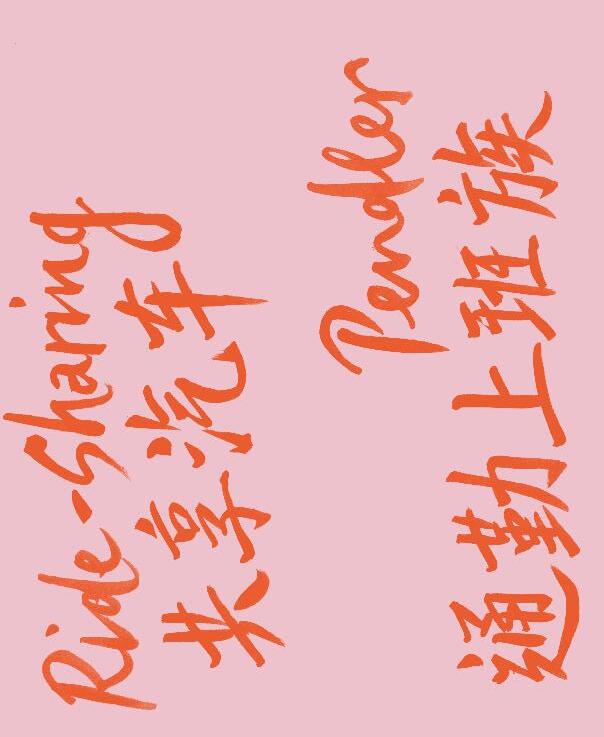 Ride-Sharing
共享汽车
Pendler
通勤上班族